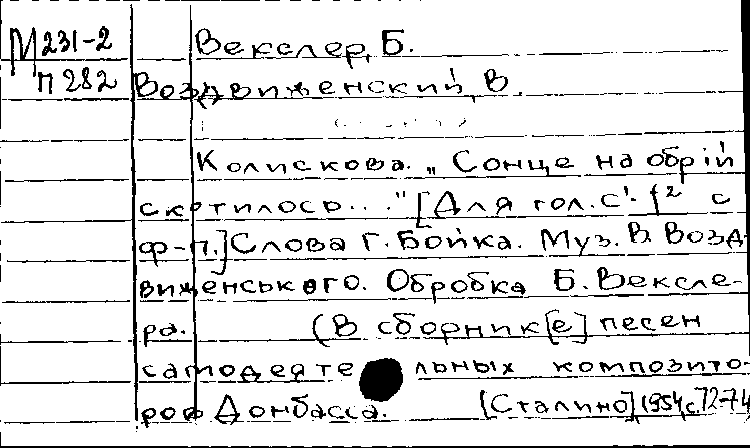 М 231-2 Векслер, Б.
П 282 Воздвиженский, В.
Колискова. „Сонце на обрій
скотилось..." [Для гол. c¹-f² с
ф-п.] Слова Г. Бойка. Муз. В. Возд-
виженського. Обробка Б. Вексле-
ра. (В сборник[е] песен
самодеятельных композито-
ров Донбасса. [Сталино], 1954, с. 72-74